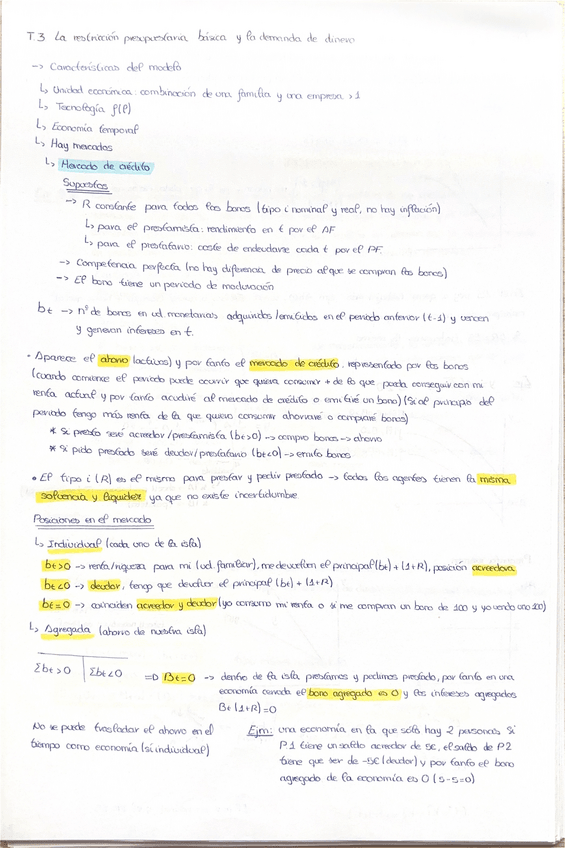 T.3 La restricción presupuestaria básica y la demanda de dinero
-> Características del modelo
↳ Unidad económica: combinación de una familia y una empresa > 1
↳ Tecnología f(l)
↳ Economía temporal
↳ Hay mercados
↳ Mercado de crédito
Supuestos
-> R constante para todos los bonos (tipo i nominal y real, no hay inflación)
↳ para el prestamista: rendimiento en t por el AF
↳ para el prestatario: coste de endeudarse cada t por el PF.
-> Competencia perfecta (no hay diferencia de precio al que se compran los bonos)
-> El bono tiene un periodo de maduración
bt -> nº de bonos en ud. monetarias adquiridos/emitidos en el periodo anterior (t-1) y vencen
y generan intereses en t.
• Aparece el ahorro (activos) y por tanto el mercado de crédito, representado por los bonos
(cuando comience el periodo puede ocurrir que quiera consumir + de lo que pueda conseguir con mi
renta actual y por tanto acudiré al mercado de crédito o emitiré un bono) (Si al principio del
periodo tengo más renta de la que quiero consumir ahorraré o compraré bonos)
* Si presto seré acreedor/prestamista (bt>0) -> compro bonos -> ahorro
* Si pido prestado seré deudor/prestatario (bt<0) -> emito bonos
• El tipo i (R) es el mismo para prestar y pedir prestado -> todos los agentes tienen la misma
solvencia y liquidez ya que no existe incertidumbre
Posiciones en el mercado
↳ Individual (cada uno de la isla)
bt>0 -> renta/riqueza para mi (ud. familiar), me devuelven el principal (bt) + (1+R), posición acreedora
bt<0 -> deudor, tengo que devolver el principal (bt) + (1+R)
bt=0 -> coinciden acreedor y deudor (yo consumo mi renta o si me compran un bono de 100 y yo vendo uno 100)
↳ Agregada (ahorro de nuestra isla)
Σbt>0 | Σbt<0 => Bt=0 -> dentro de la isla prestamos y pedimos prestado, por tanto en una
economía cerrada el bono agregado es 0 y los intereses agregados
Bt(1+R)=0
No se puede trasladar el ahorro en el
tiempo como economía (sí individual)
Ejm: una economía en la que sólo hay 2 personas si
P1 tiene un saldo acreedor de 5€, el saldo de P2
tiene que ser de -5€ (deudor) y por tanto el bono
agregado de la economía es 0 (5-5=0)